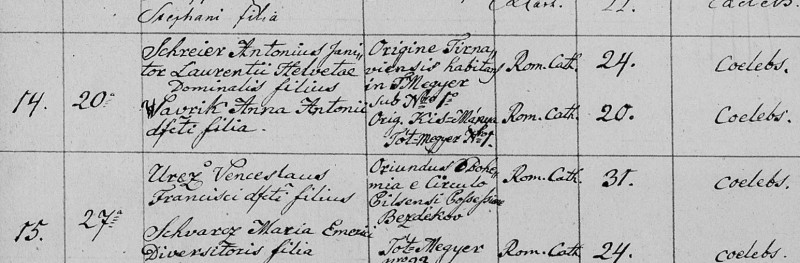 Stephani filia
Schreier Antonius Jani„
tor Laurentii Helvetae
Dominalis filius
Origine Tirna„
viensis habitans
in T Megyer
sub Nro 1o
Rom. Cath.
24.
coelebs.
14.
20a
Wavrik Anna Antonii
dfcti filia.
Orig. Kis-Mánya
Tót-Megyer Nr 1.
Rom. Cath.
20.
coelebs.
Venceslaus
Francisci dfcti filius
Oriundus Bohe„
mia e Circulo
Pilsensi Possessione
Bezdekov
Rom Cath.
31.
coelebs.
15.
27a
Schvarcz Maria Emerici
Diversitoris filia
Tót-Megyer
Rom. Cath
24.
coelebs.